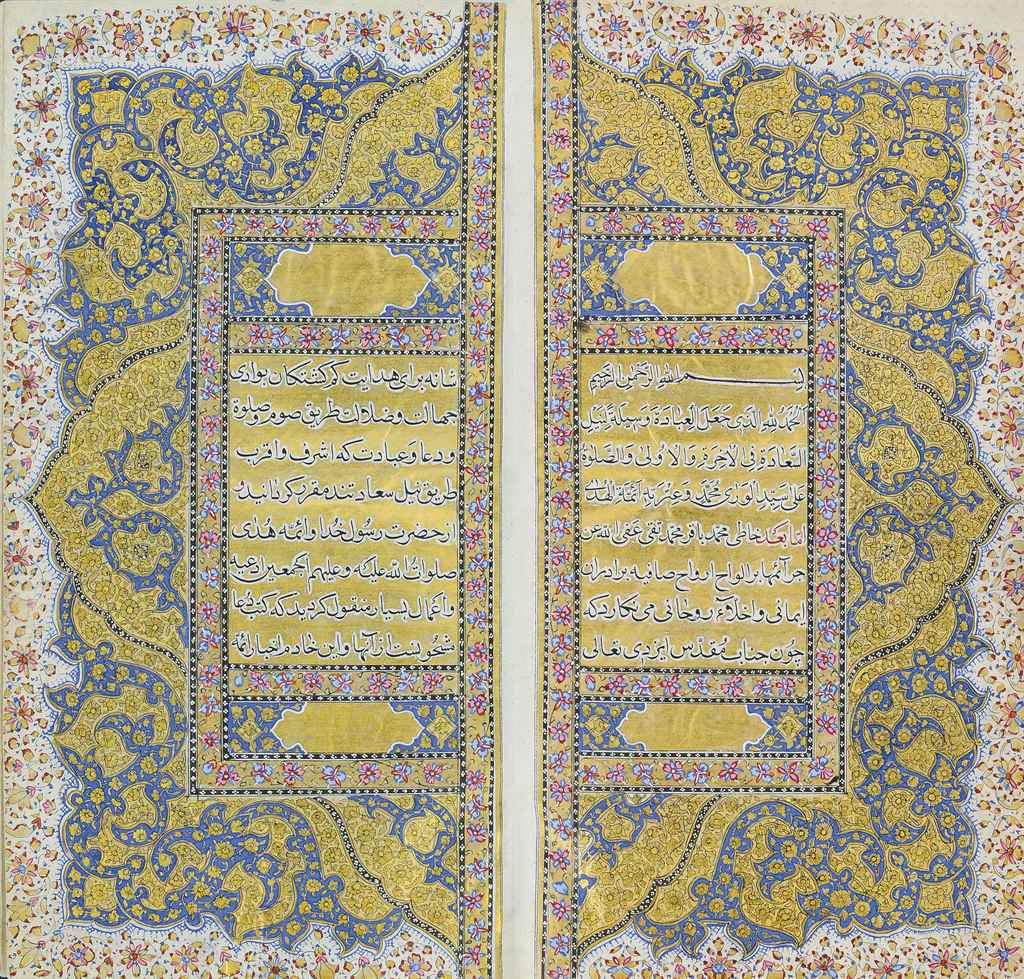 بسم الله الرحمن الرحیم
الحمد لله الذی جعل العبادة وسیلة لنیل
السعادة فی الاخرة والاولی والصلوة
علی سید الوری محمد وعترته ائمة الهدی
اما بعد خاطی محمد باقر بن محمد تقی عفی الله عن
جرآئمهما بر الواح ارواح صافیه برادران
ایمانی و اخلاء روحانی می نکارد که
چون جناب مقدس ایزدی تعالی
شانه برای هدایت کم کشتکان بوادی
جهالت وضلالت طریق صوم وصلوة
ودعا وعبادت که اشرف و اقرب
طریق نیل سعادتند مقرر کردانیده
از حضرت رسول خدا وائمه هدی
صلوات الله علیه وعلیهم اجمعین ادعیه
واعمال بسیار منقول کردیده که کتب دعا
مشحونست از آنها و این خادم اخبار ائمه